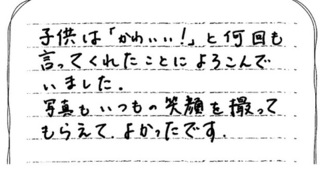 子供は「かわいい!」と何回も
言ってくれたことによろこんで
いました.
写真もいつもの笑顔を撮って
もらえて、よかったです.